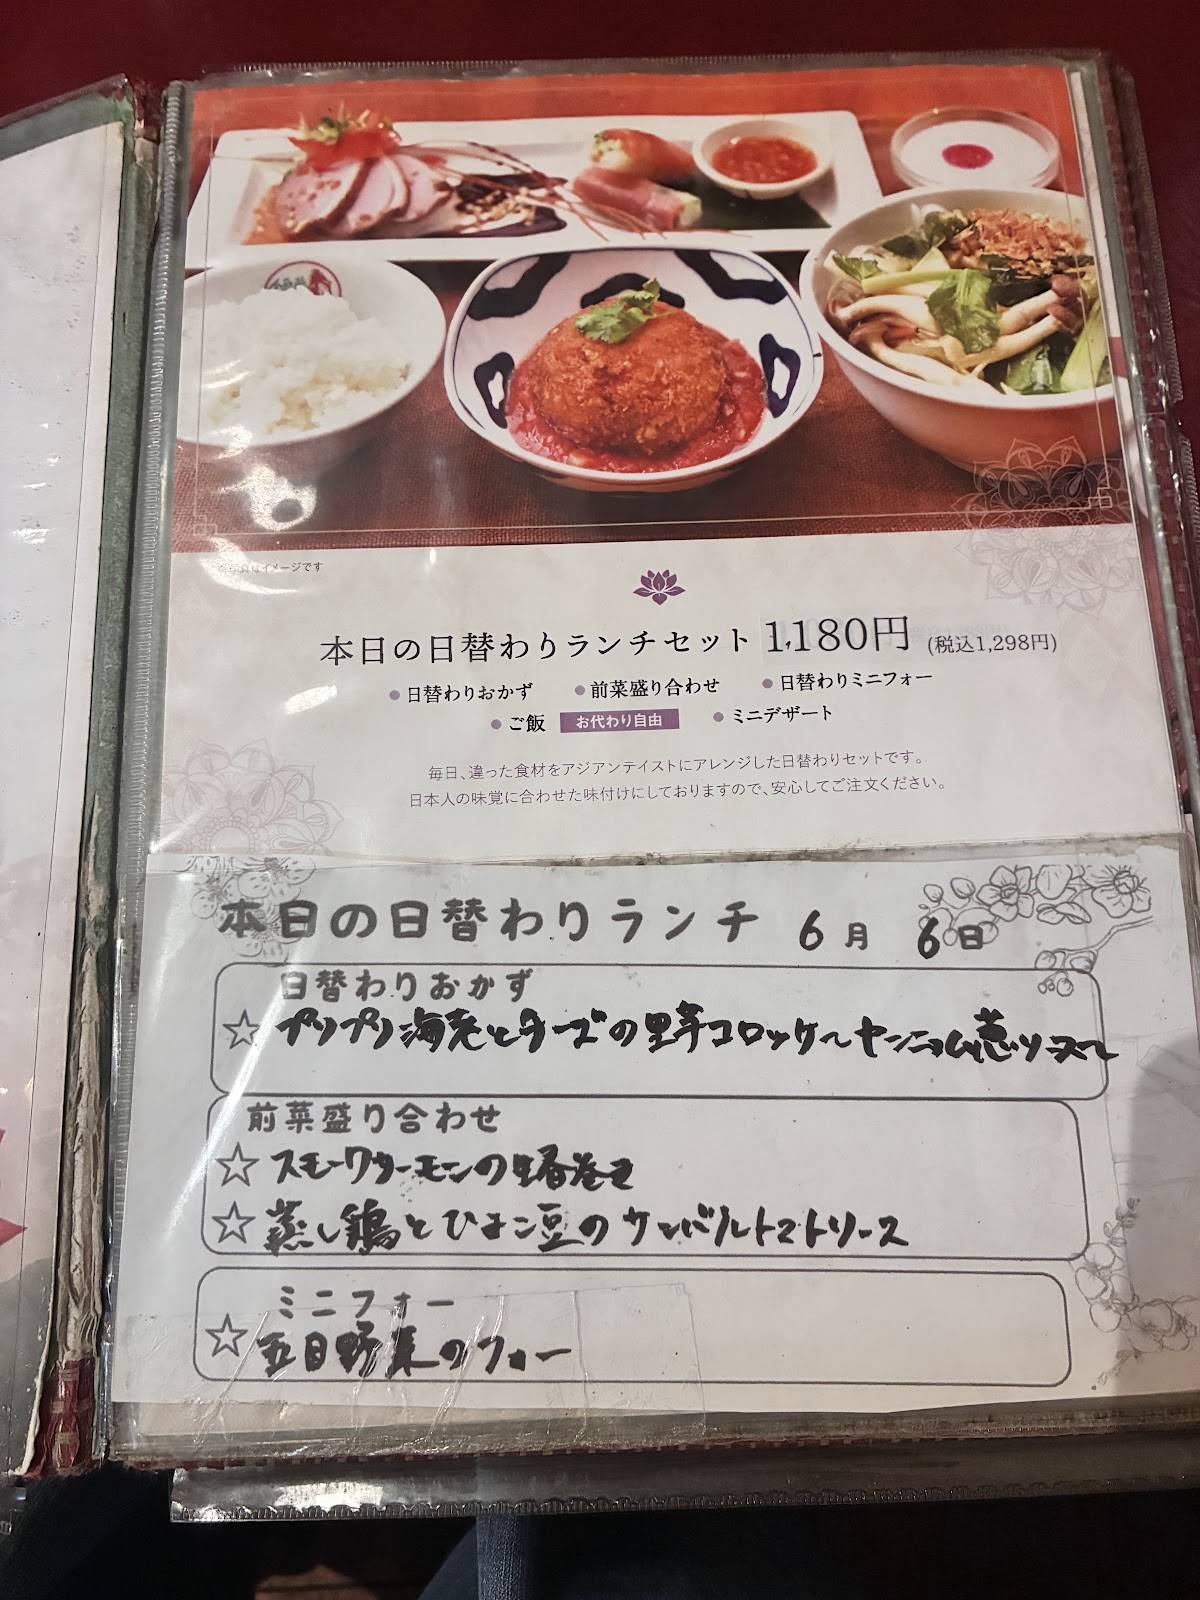 本日の日替わりランチセット 1,180円 (税込1,298円)
●日替わりおかず ●前菜盛り合わせ ●日替わりミニフォー
●ご飯 お代わり自由 ●ミニデザート
毎日、違った食材をアジアンテイストにアレンジした日替わりセットです。
日本人の味覚に合わせた味付けにしておりますので、安心してご注文ください。
本日の日替わりランチ 6月 6日
日替わりおかず
☆プリプリ海老とチーズの里芋コロッケ〜ヤンニョム葱ソース〜
前菜盛り合わせ
☆スモークサーモンの生春巻き
☆蒸し鶏とひよこ豆のサンバルトマトソース
ミニフォー
☆五目野菜のフォー